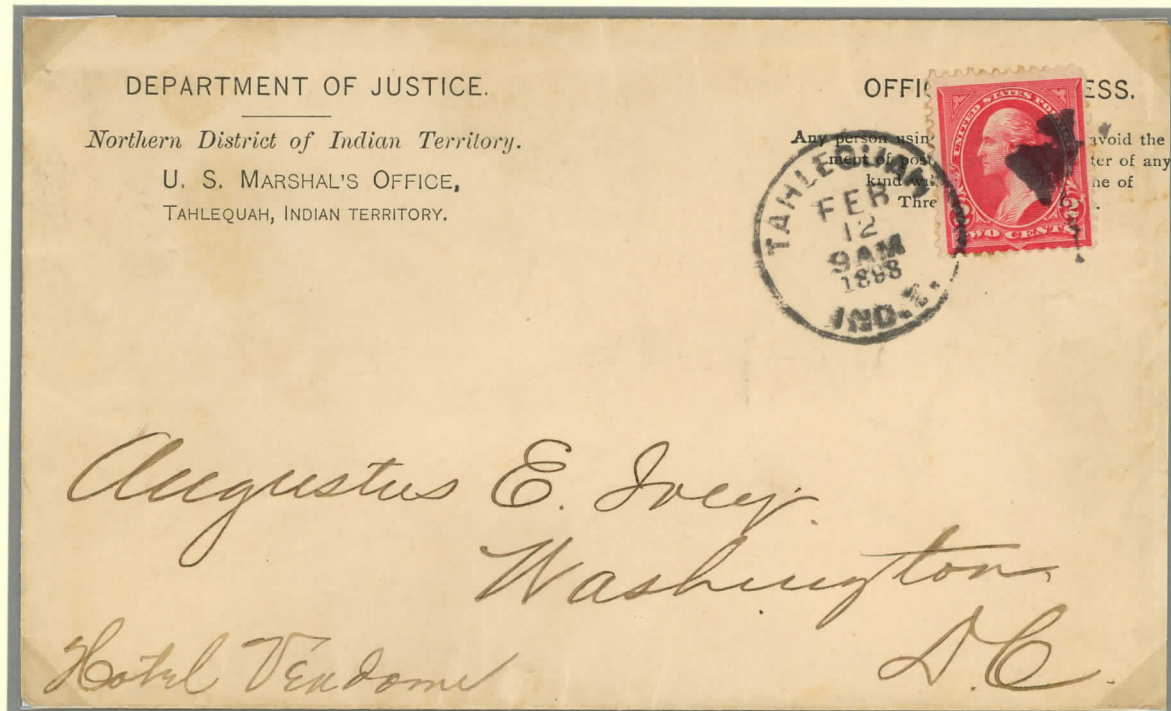 DEPARTMENT OF JUSTICE.
Northern District of Indian Territory.
U. S. MARSHAL'S OFFICE,
TAHLEQUAH, INDIAN TERRITORY.
OFFIC ESS.
Any person using avoid the
ment of post ter of any
kind wi ne of
Thre
UNITED STATES POS
2 2
TWO CENTS
TAHLEQUAH
FEB
12
9AM
1898
IND.T.
Augustus E. Ivey.
Washington
D.C.
Hotel Vendome